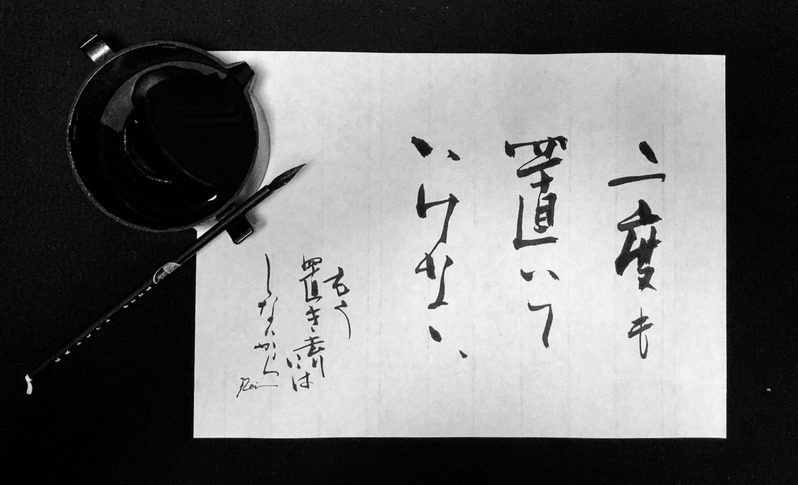 二度も
置いて
いけない
もう
置き去りには
しないから
Rei